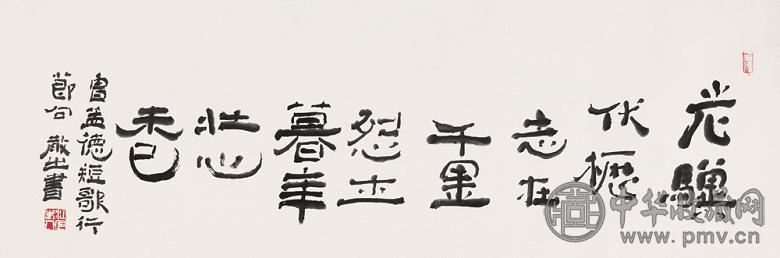 老驥
伏櫪
志在
千里
烈士
暮年
壯心
未已
曹孟德短歌行
節句 散之書
中华收藏网
www.pmv.cn